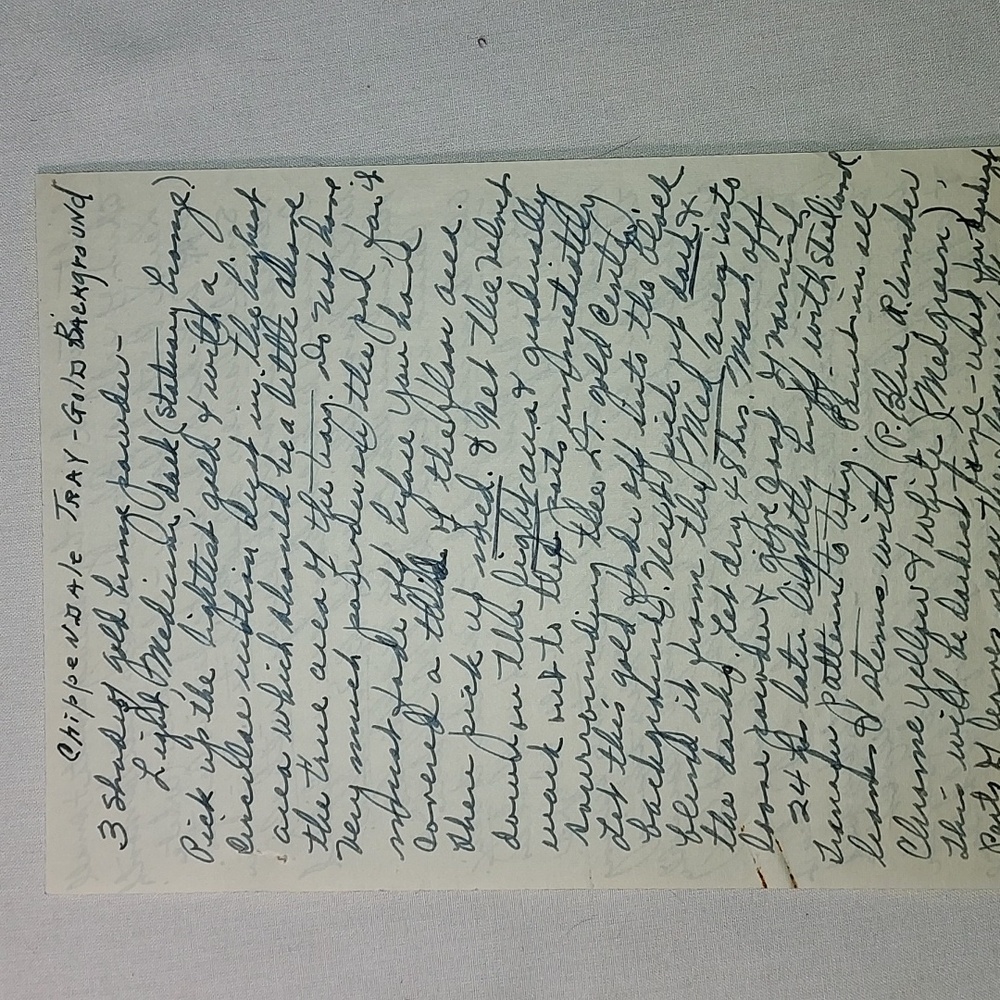 Chippendale Tray - Gold Background
3 Shades gold bronze powder -
Light, Medium, dark (Statuary bronze.)
Pick up the lightest gold & with a
circular motion begin in the highest
area which should be a little above
the true area of the tray. Do not have
very much powder used the pal for it
must fade off before you have
covered a third of the flow area.
Then pick up med. & hit the velvet
down on the light area & gradually
work out to the parts immediately
surrounding the lt. gold center.
Let this gold fade off into the black
background. Next pick up dark &
blend it from the Med areas into
the dark. Let dry 48 hrs. Wash off
loose powder & give coat of varnish
24 hrs later lightly buff with steel wool
Transfer pattern to tray. Paint in all
leaves & stems with (P. Blue R. Umber
Chrome yellow & white (Med green),
this will be darkest tone - used for darkest
parts of leaves